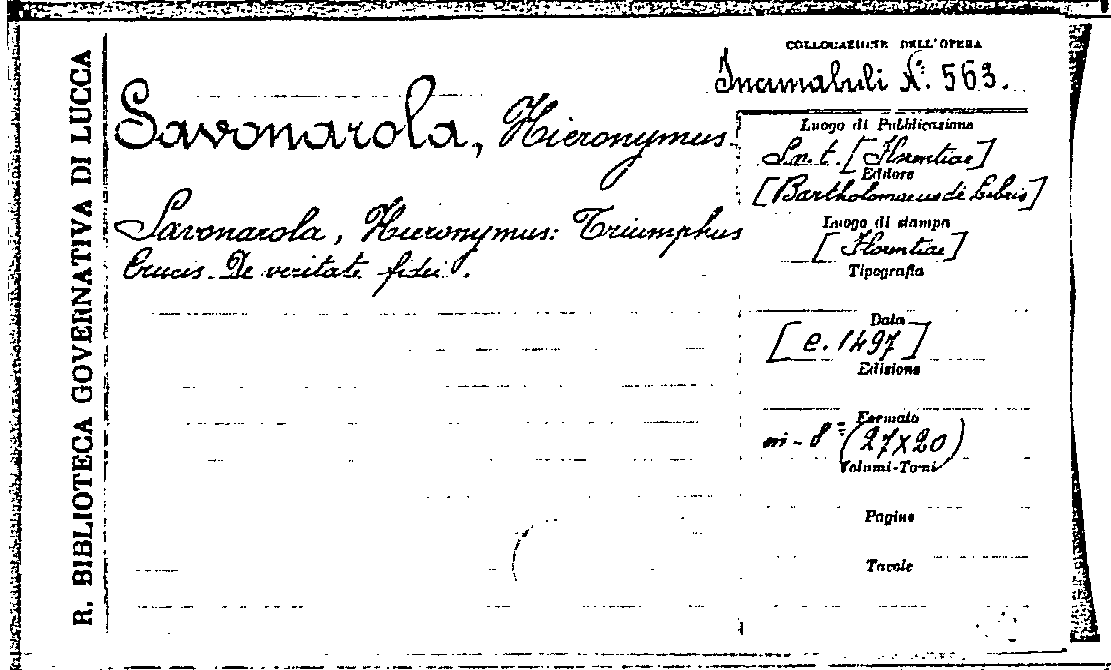 R. BIBLIOTECA GOVERNATIVA DI LUCCA
COLLOCAZIONE DELL'OPERA
Incunabuli N.º 563.
Savonarola, Hieronymus.
Savonarola, Hieronymus: Triumphus
Crucis. De veritate fidei.
Luogo di Pubblicazione
S. n. t. [Florentiae]
Editore
[Bartholomaeus de Libris]
Luogo di stampa
[Florentiae]
Tipografia
Data
[c. 1497]
Edizione
Formato
in-8º (27x20)
Volumi-Tomi
Pagine
Tavole